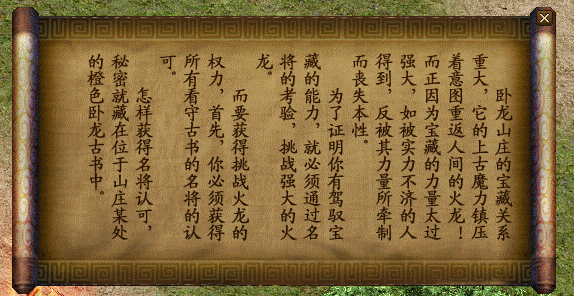 卧龙山庄的宝藏关系
重大，它的上古魔力镇压
着意图重返人间的火龙！
而正因为宝藏的力量太过
强大，如被实力不济的人
得到，反被其力量所牵制
而丧失本性。
为了证明你有驾驭宝
藏的能力，就必须通过名
将的考验，挑战强大的火
龙。
而要获得挑战火龙的
权力，首先，你必须获得
所有看守古书的名将的认
可。
怎样获得名将认可，
秘密就藏在位于山庄某处
的橙色卧龙古书中。